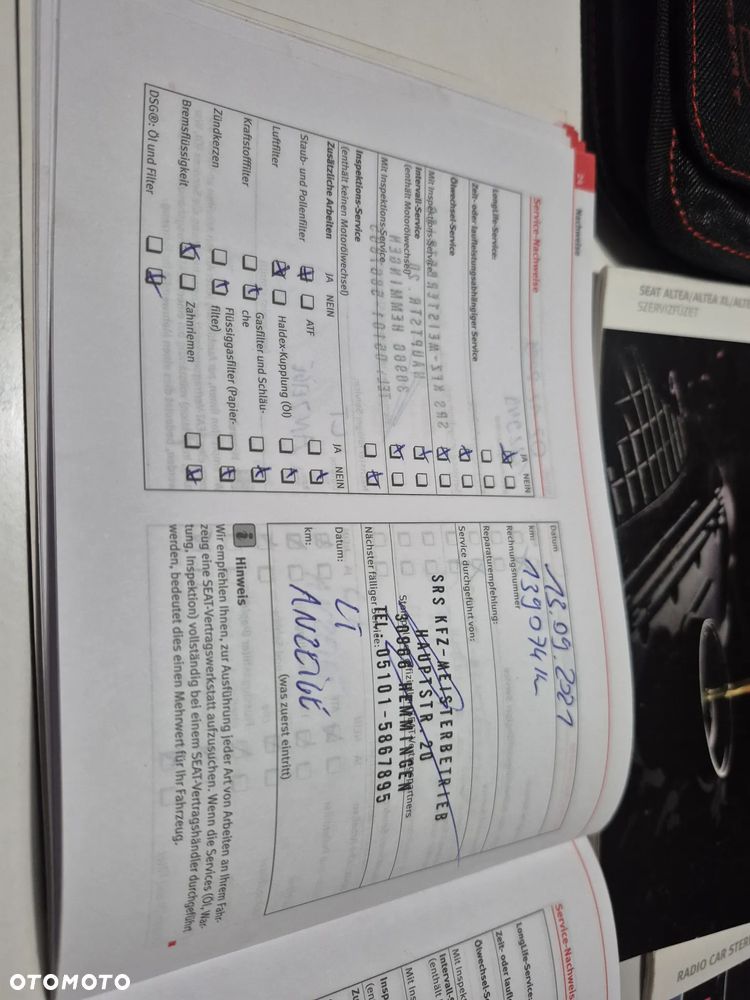 24
Nachweise
Service-Nachweise
JA NEIN
LongLife-Service:
Zeit- oder laufleistungsabhängiger Service
Ölwechsel-Service
Mit Inspektions-Service
Intervall-Service
(enthält Motorölwechsel)
Mit Inspektions-Service
Inspektions-Service
(enthält keinen Motorölwechsel)
Zusätzliche Arbeiten JA NEIN JA NEIN
Staub- und Pollenfilter ATF
Luftfilter Haldex-Kupplung (Öl)
Kraftstofffilter Gasfilter und Schläu-
che
Zündkerzen Flüssiggasfilter (Papier-
filter)
Bremsflüssigkeit Zahnriemen
DSG®: Öl und Filter
Datum 13.09.2021
km: 139074 k
Rechnungsnummer
Reparaturempfehlung:
Service durchgeführt von:
SRS KFZ-MEISTERBETRIEB
HAUPTSTR. 20
30966 HEMMINGEN
TEL.: 05101-5867895
Nächster fälliger Service:
Datum: LT
km: ANZEIGE
(was zuerst eintritt)
Hinweis
Wir empfehlen Ihnen, zur Ausführung jeder Art von Arbeiten an Ihrem Fahr-
zeug eine SEAT-Vertragswerkstatt aufzusuchen. Wenn die Services (Öl, War-
tung, Inspektion) vollständig bei einem SEAT-Vertragshändler durchgeführt
werden, bedeutet dies einen Mehrwert für Ihr Fahrzeug.
Service-Nachweise
LongLife-Service:
Zeit- oder
Ölwechsel-S
Mit Inspek
Intervall-Se
(enthält
Mit Ins
Insp
SEAT ALTEA/ALTEA XL/ALTE
SZERVIZFÜZET
RADIO CAR STER
OTOMOTO